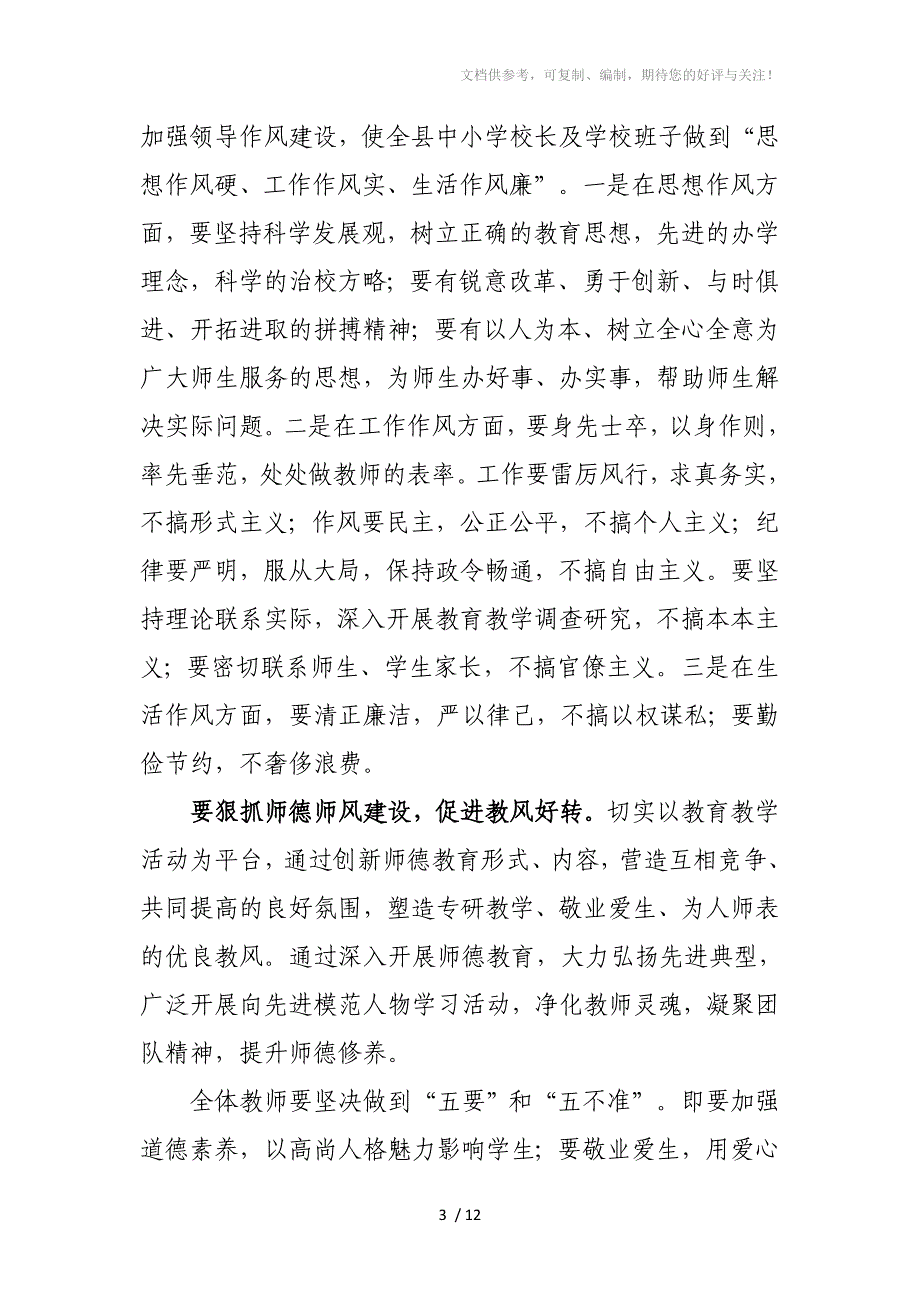 文档供参考，可复制、编制，期待您的好评与关注！
加强领导作风建设，使全县中小学校长及学校班子做到“思
想作风硬、工作作风实、生活作风廉”。一是在思想作风方
面，要坚持科学发展观，树立正确的教育思想，先进的办学
理念，科学的治校方略；要有锐意改革、勇于创新、与时俱
进、开拓进取的拼搏精神；要有以人为本、树立全心全意为
广大师生服务的思想，为师生办好事、办实事，帮助师生解
决实际问题。二是在工作作风方面，要身先士卒，以身作则，
率先垂范，处处做教师的表率。工作要雷厉风行，求真务实，
不搞形式主义；作风要民主，公正公平，不搞个人主义；纪
律要严明，服从大局，保持政令畅通，不搞自由主义。要坚
持理论联系实际，深入开展教育教学调查研究，不搞本本主
义；要密切联系师生、学生家长，不搞官僚主义。三是在生
活作风方面，要清正廉洁，严以律己，不搞以权谋私；要勤
俭节约，不奢侈浪费。
要狠抓师德师风建设，促进教风好转。切实以教育教学
活动为平台，通过创新师德教育形式、内容，营造互相竞争、
共同提高的良好氛围，塑造专研教学、敬业爱生、为人师表
的优良教风。通过深入开展师德教育，大力弘扬先进典型，
广泛开展向先进模范人物学习活动，净化教师灵魂，凝聚团
队精神，提升师德修养。
全体教师要坚决做到“五要”和“五不准”。即要加强
道德素养，以高尚人格魅力影响学生；要敬业爱生，用爱心
3 / 12